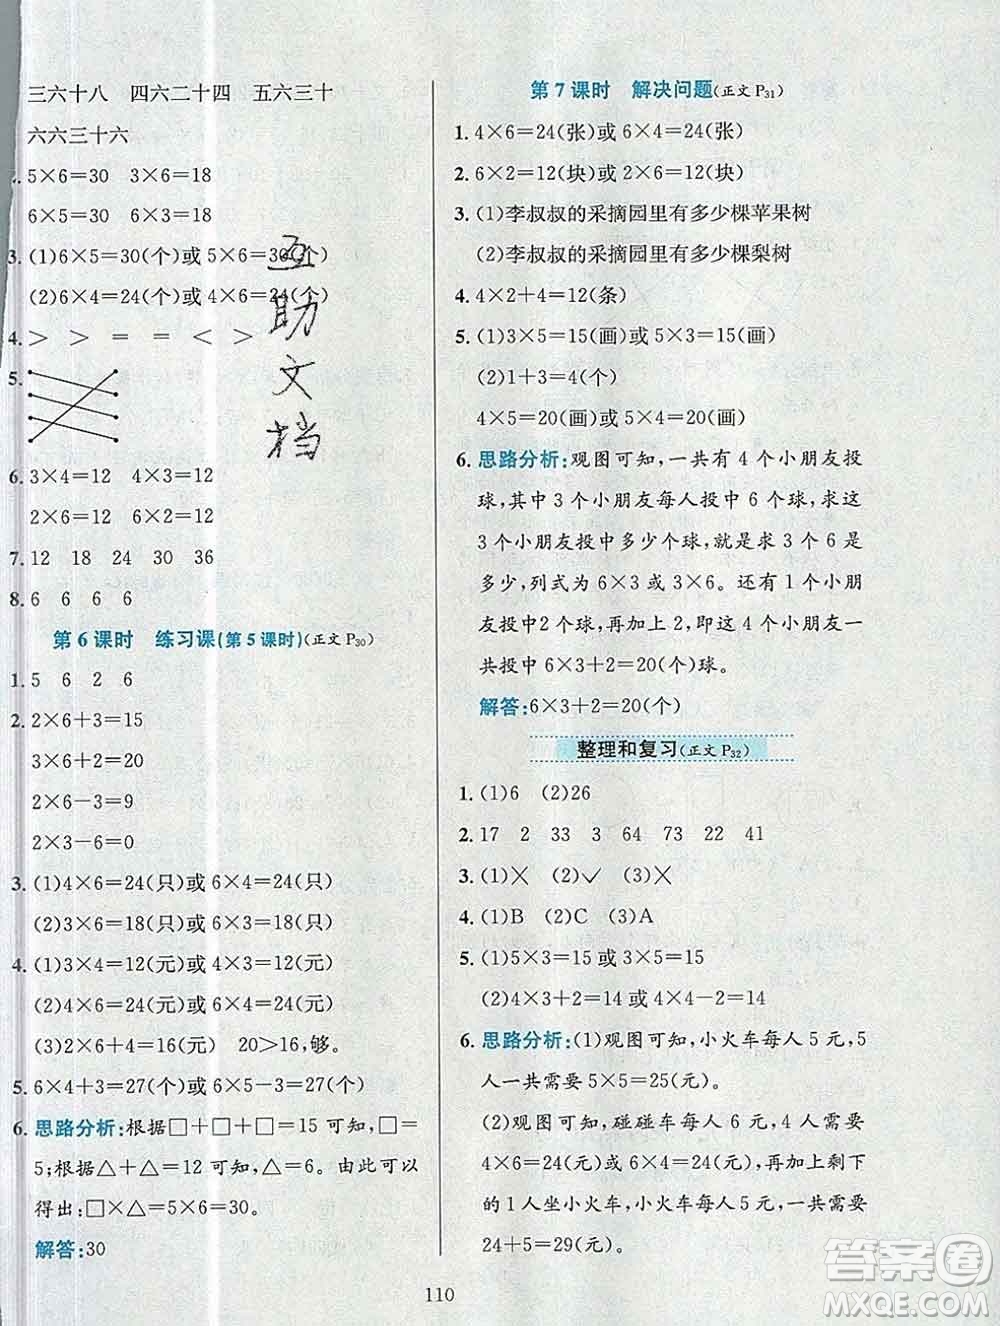 三六十八 四六二十四 五六三十
六六三十六
5×6=30 3×6=18
6×5=30 6×3=18
3. (1)6×5=30(个)或 5×6=30(个)
(2)6×4=24(个)或 4×6=24(个)
4. > > = = < >
5.
6. 3×4=12 4×3=12
2×6=12 6×2=12
7. 12 18 24 30 36
8. 6 6 6 6 6
第 6 课时 练习课(第 5 课时)(正文 P30)
1. 5 6 2 6
2. 2×6+3=15
3×6+2=20
2×6-3=9
2×3-6=0
3. (1)4×6=24(只)或 6×4=24(只)
(2)3×6=18(只)或 6×3=18(只)
4. (1)3×4=12(元)或 4×3=12(元)
(2)4×6=24(元)或 6×4=24(元)
(3)2×6+4=16(元) 20>16,够。
5. 6×4+3=27(个)或 6×5-3=27(个)
6. 思路分析:根据□+□+□=15 可知,□=
5;根据△+△=12 可知,△=6。由此可以
得出:□×△=5×6=30。
解答:30
互
助
文
档
第 7 课时 解决问题(正文 P31)
1. 4×6=24(张)或 6×4=24(张)
2. 6×2=12(块)或 2×6=12(块)
3. (1)李叔叔的采摘园里有多少棵苹果树
(2)李叔叔的采摘园里有多少棵梨树
4. 4×2+4=12(条)
5. (1)3×5=15(画)或 5×3=15(画)
(2)1+3=4(个)
4×5=20(画)或 5×4=20(画)
6. 思路分析:观图可知,一共有 4 个小朋友投
球,其中 3 个小朋友每人投中 6 个球,求这
3 个小朋友投中多少个球,就是求 3 个 6 是
多少,列式为 6×3 或 3×6。还有 1 个小朋
友投中2 个球,再加上 2,即这 4 个小朋友一
共投中 6×3+2=20(个)球。
解答:6×3+2=20(个)
整理和复习(正文 P32)
1. (1)6 (2)26
2. 17 2 33 3 64 73 22 41
3. (1)× (2)✓ (3)×
4. (1)B (2)C (3)A
5. (1)5×3=15 或 3×5=15
(2)4×3+2=14 或 4×4-2=14
6. 思路分析:(1)观图可知,小火车每人 5 元,5
人一共需要 5×5=25(元)。
(2)观图可知,碰碰车每人 6 元,4 人需要
4×6=24(元)或 6×4=24(元),再加上剩下
的 1 人坐小火车,小火车每人 5 元,一共需要
24+5=29(元)。
110
答案圈
MXQE.COM